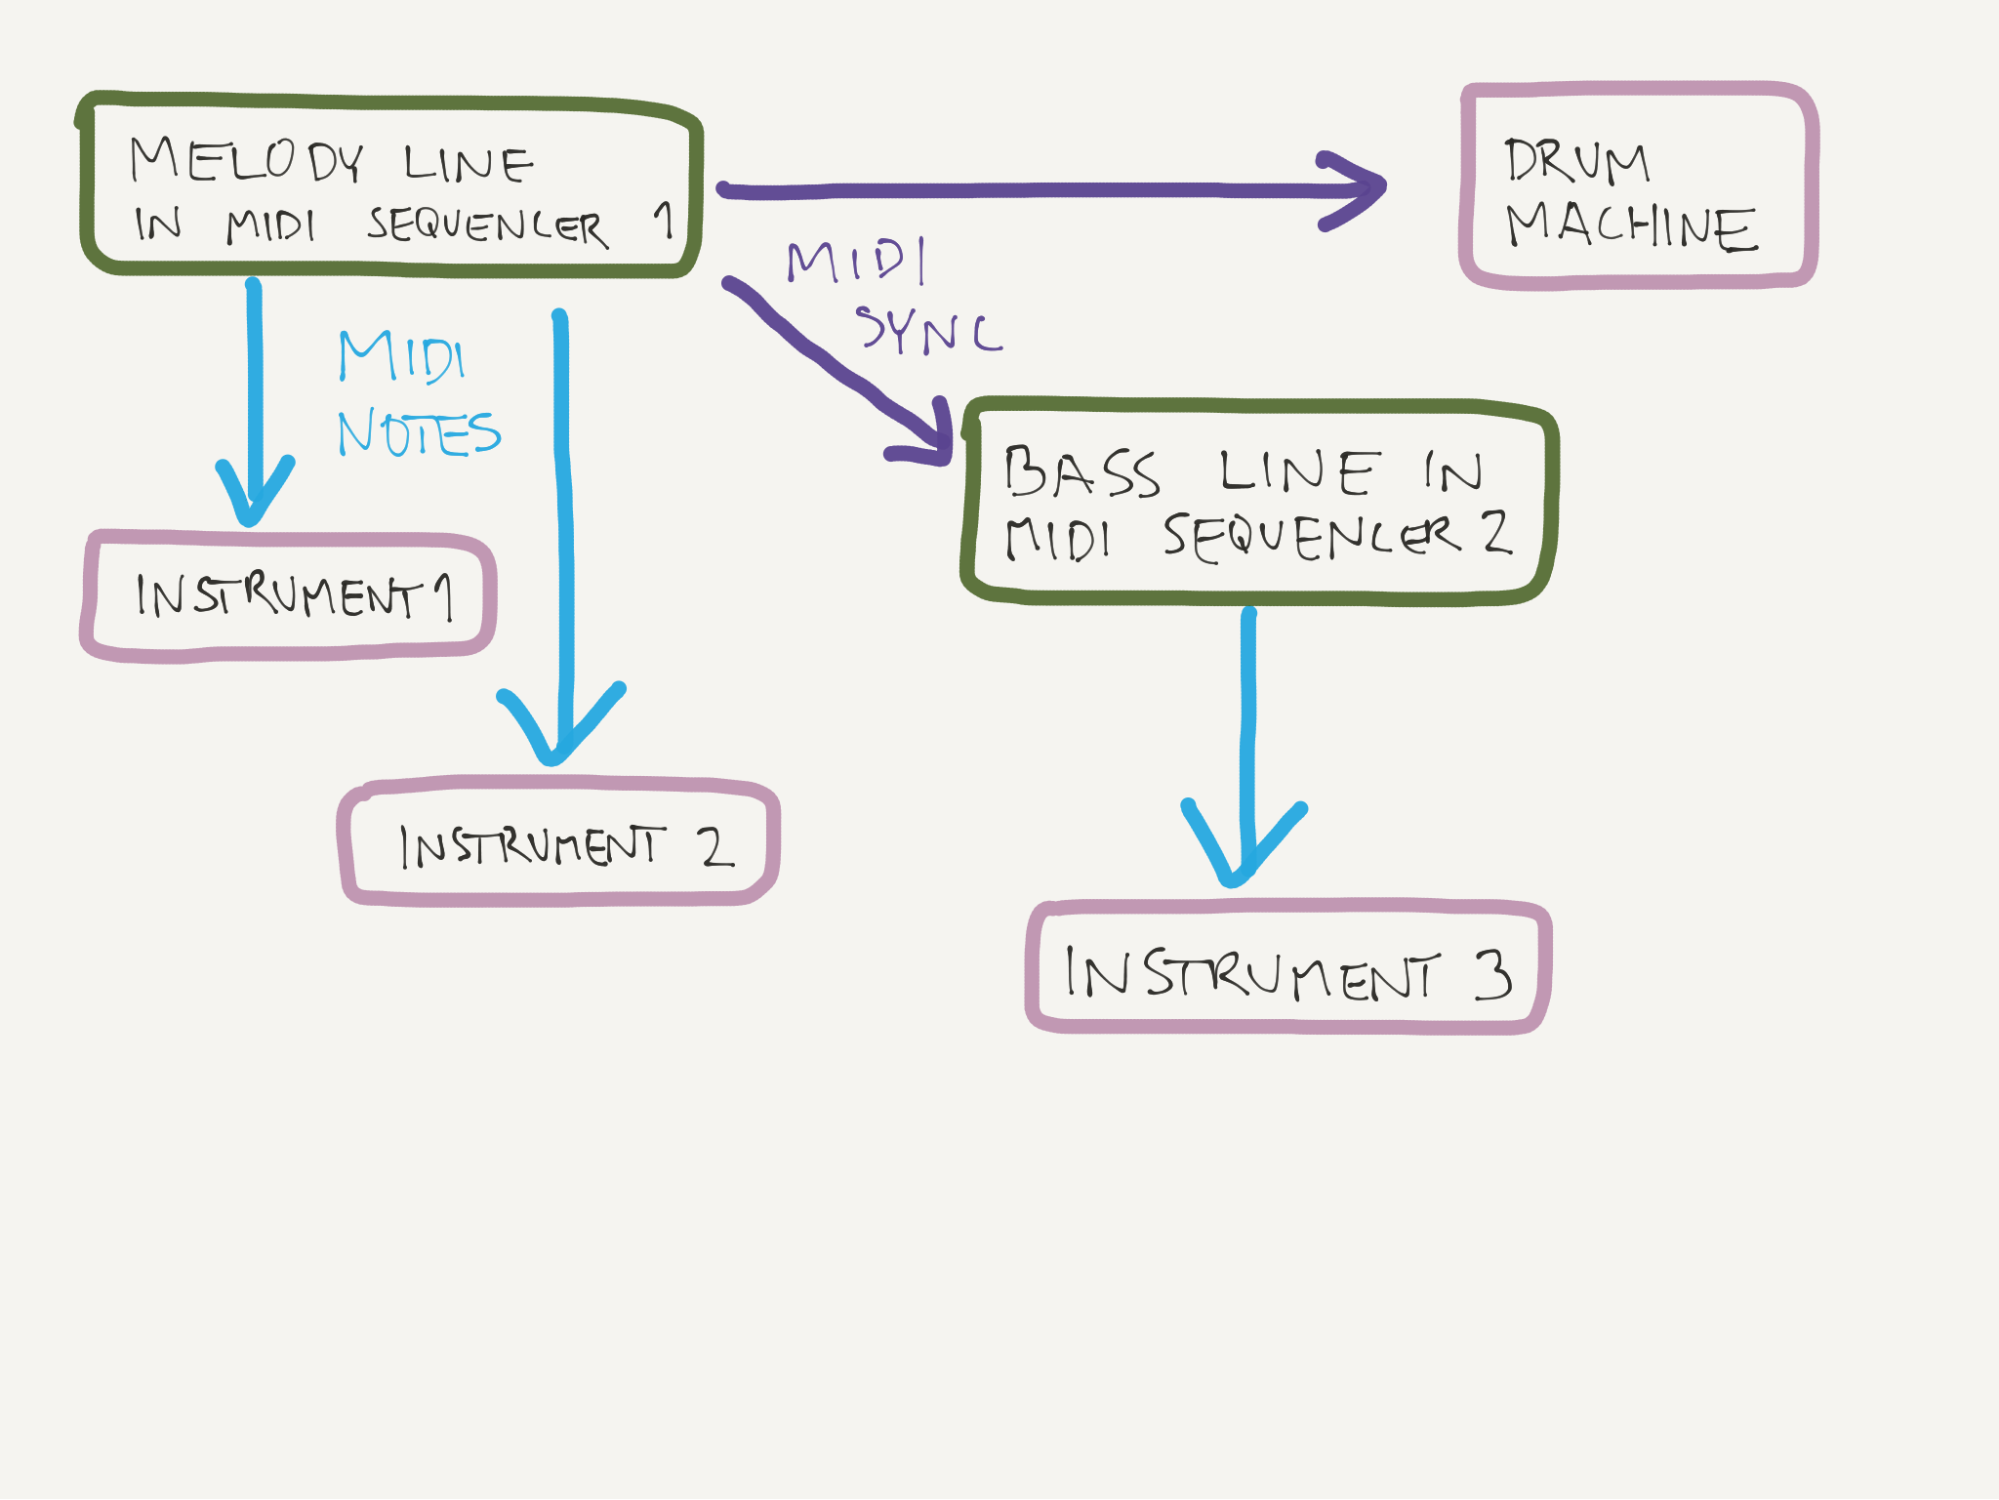 MELODY LINE
IN MIDI SEQUENCER 1
DRUM
MACHINE
MIDI
SYNC
MIDI
NOTES
BASS LINE IN
MIDI SEQUENCER 2
INSTRUMENT 1
INSTRUMENT 2
INSTRUMENT 3